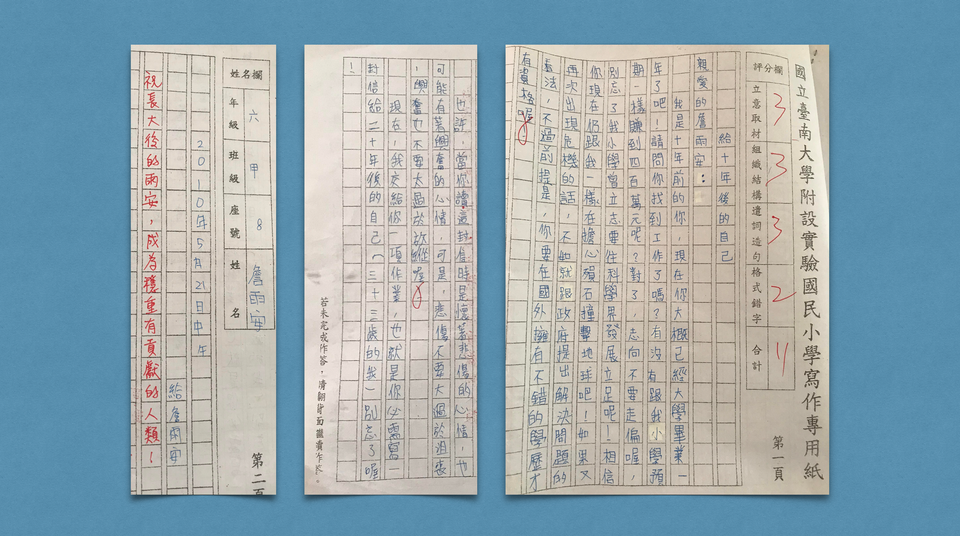 國立臺南大學附設實驗國民小學寫作專用紙
第一頁
評分欄
立意取材 3
組織結構 3
遣詞造句 3
格式錯字 2
合計 11
給十年後的自己
親愛的詹雨安：
我是十年前的你，現在你大概已經大學畢業一
年了吧！請問你找到工作了嗎？有沒有跟我小學預
期一樣賺到四百萬元呢？對了，志向不要走偏喔，
別忘了我小學曾立志要往科學界發展立足呢！相信
你現在仍跟我一樣在擔心殞石撞擊地球吧！如果又
再次出現危機的話，不如就跟政府提出解決問題的
辦法，不過前提是，你要在國外擁有不錯的學歷才
有資格喔！
也許，當你讀這封信時是懷著悲傷的心情，也
可能有著興奮的心情，可是，悲傷不要太過於沮喪
，興奮也不要太過於放縱喔！
現在，我交給你一項作業，也就是你必需寫一
封信給二十年後的自己（三十三歲的我）別忘了喔
！
若未完成作答，請翻背面繼續作答。
第二頁
姓名欄
年級 六
班級 甲
座號 8
姓名 詹雨安
2010年5月21日中午
給詹雨安
祝長大後的雨安，成為穩重有貢獻的人類！